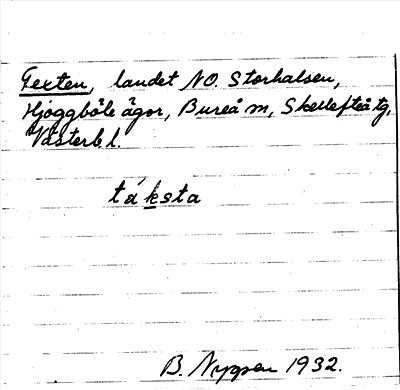 Texten, landet NO. Storhalsen,
Hjoggböle ägor, Bureå m, Skellefteå tg,
Västerb. l.
táksta
B. Nyppen 1932.